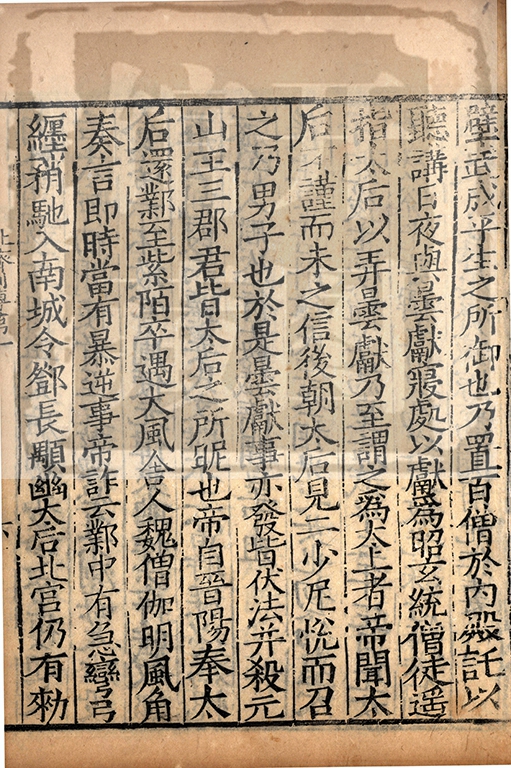 壁武成平生之所御也乃置百僧於內殿託以
聽講日夜與曇獻寢處以獻為昭玄統僧徒遥
指太后以弄曇獻乃至謂之為太上者帝聞太
后不謹而未之信後朝太后見二少尼悅而召
之乃男子也於是曇獻事亦發皆伏法并殺元
山王三郡君皆太后之所昵也帝自晉陽奉太
后還鄴至紫陌卒遇大風舍人魏僧伽明風角
奏言即時當有暴逆事帝詐云鄴中有急彎弓
纒矟馳入南城令鄧長顒幽太后北宫仍有勑